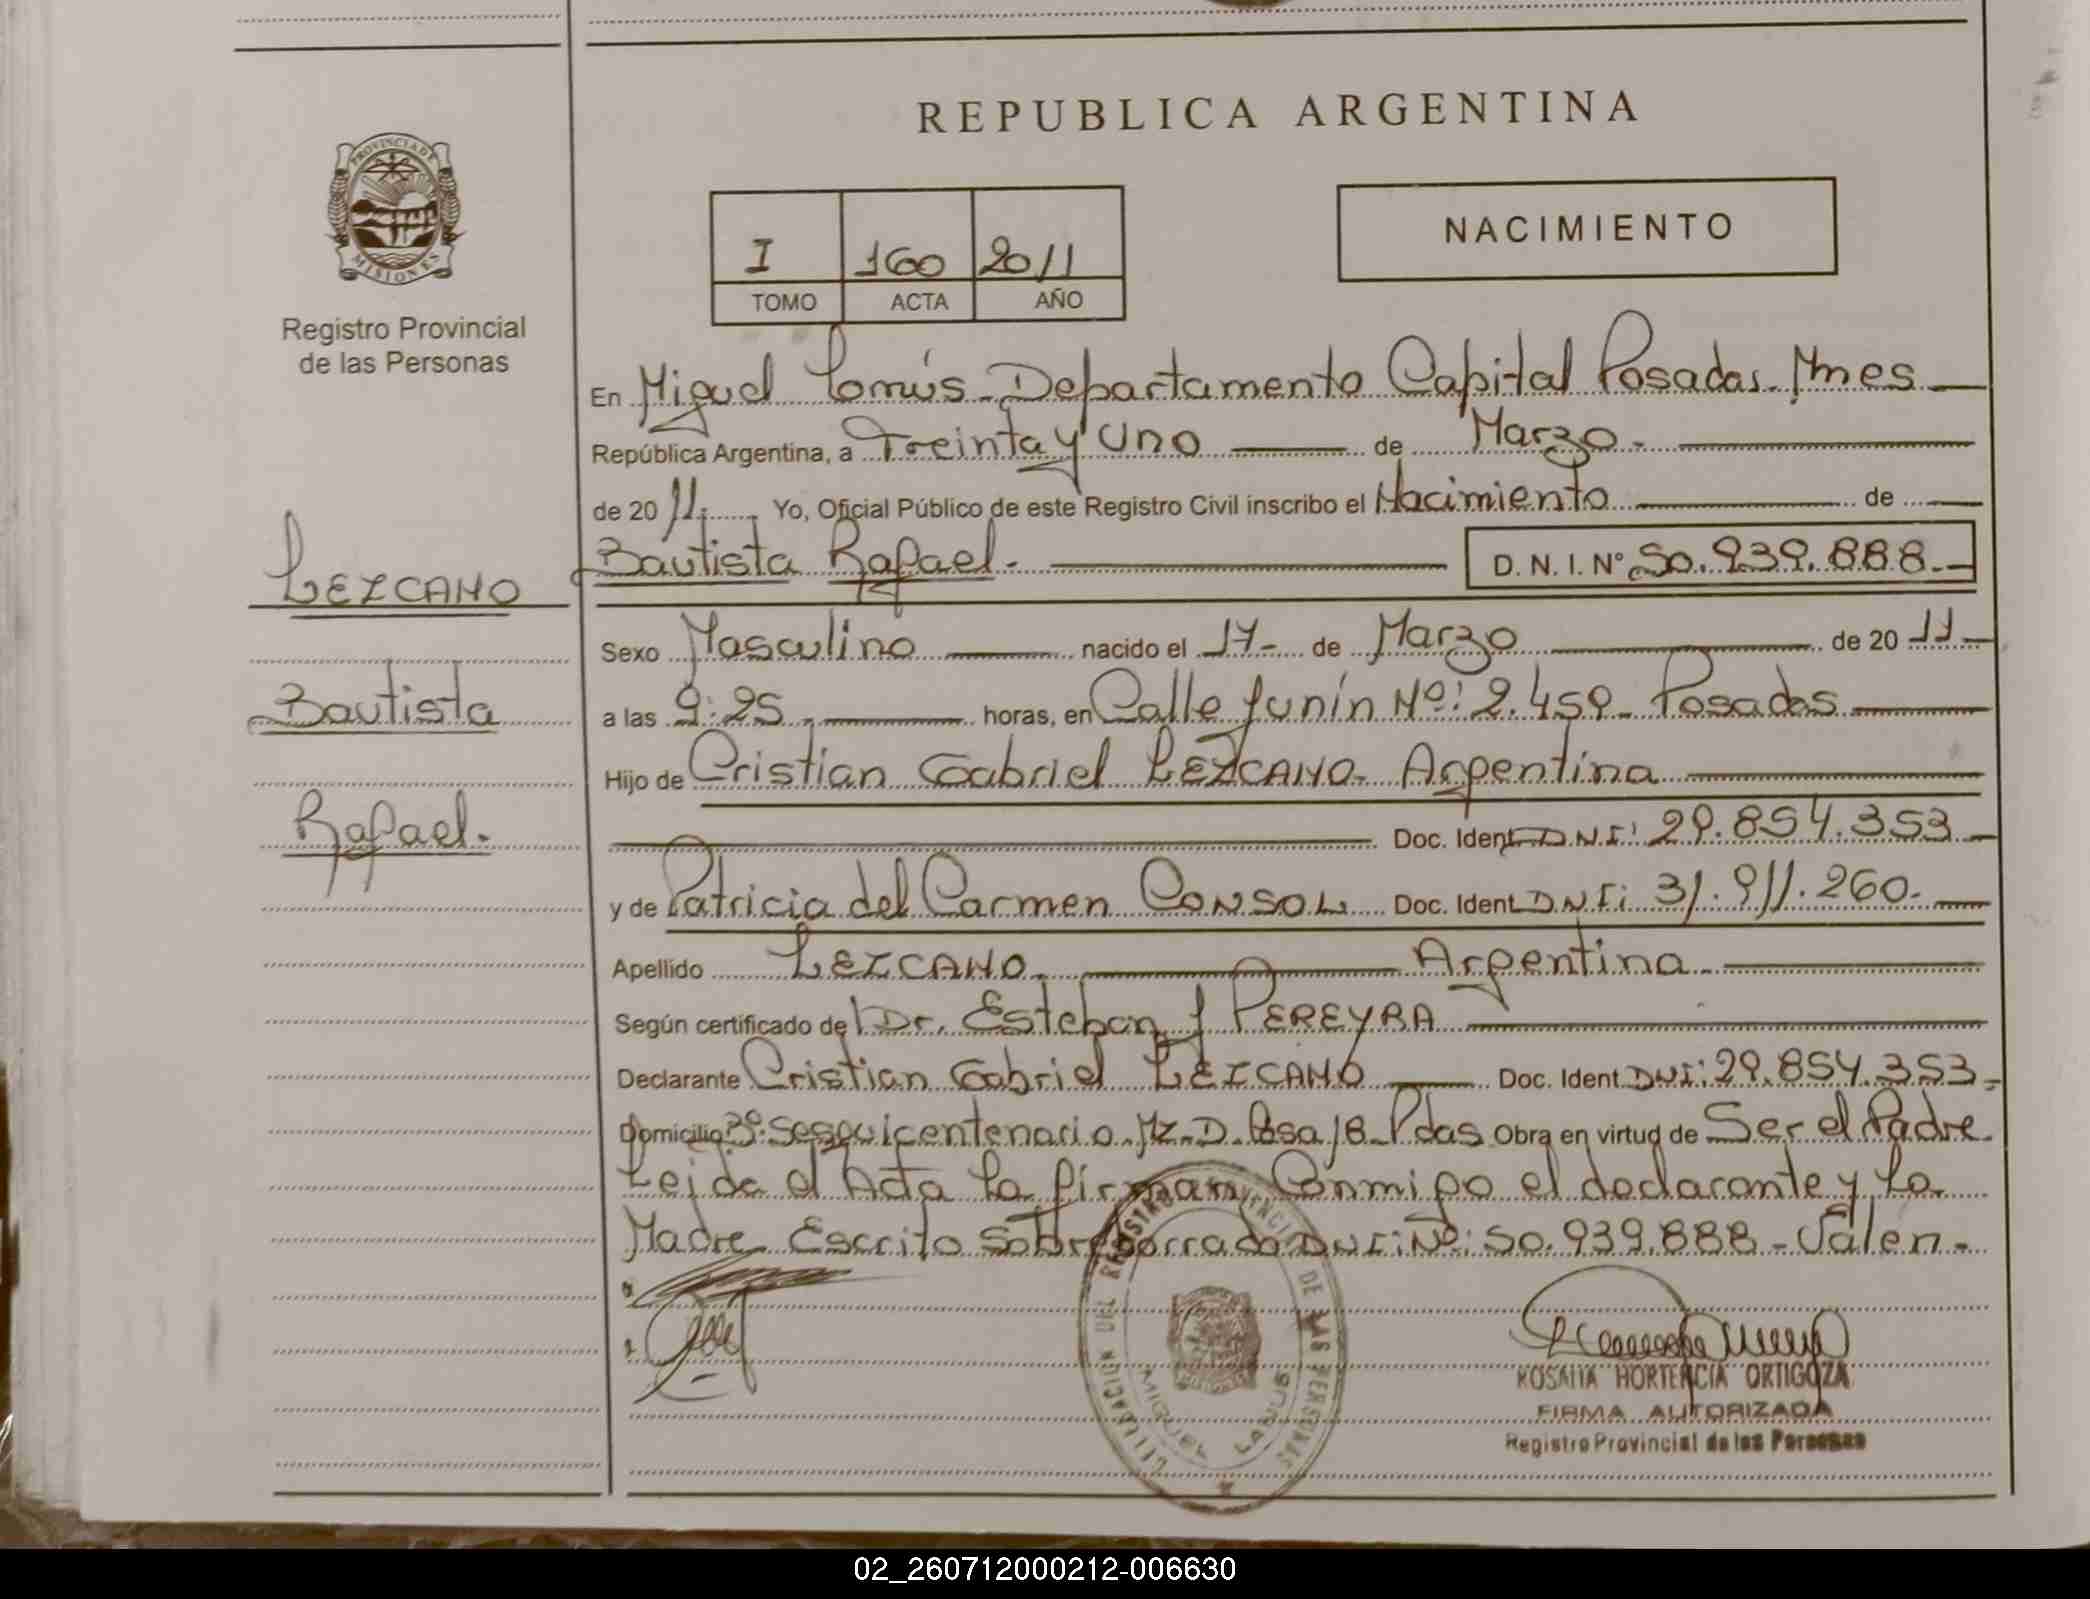 REPUBLICA ARGENTINA
PROVINCIA DE
MISIONES
Registro Provincial
de las Personas
I 160 2011
TOMO ACTA AÑO
NACIMIENTO
En Miguel Lanús - Departamento Capital Posadas - Mnes
República Argentina, a Treinta y Uno de Marzo.-
de 20 11.- Yo, Oficial Público de este Registro Civil inscribo el Nacimiento de
Bautista Rafael.- D. N. I. Nº 50.939.888.-
LEZCANO
Bautista
Rafael.-
Sexo Masculino nacido el 17- de Marzo de 20 11
a las 9:25.- horas, en Calle Junín Nº: 2.459- Posadas
Hijo de Cristian Gabriel LEZCANO- Argentina
Doc. Ident. D.N.I: 29.854.353
y de Patricia del Carmen CONSOL Doc. Ident. DNI: 31.911.260.-
Apellido LEZCANO. Argentina.-
Según certificado del Dr. Esteban J PEREYRA
Declarante Cristian Gabriel LEZCANO Doc. Ident. DNI: 29.854.353-
Domicilio Bº. Sesquicentenario.Mz.D. Casa 18- Pdas Obra en virtud de Ser el Padre.
Leida el Acta la firman Conmigo el declarante y la
Madre- Escrito Sobreborrado DNI: Nº: 50.939.888- Valen-
DELEGACION DEL REGISTRO PROVINCIAL DE LAS PERSONAS
MIGUEL LANUS
ROSANA HORTENCIA ORTIGOZA
FIRMA AUTORIZADA
Registro Provincial de las Personas
02_260712000212-006630